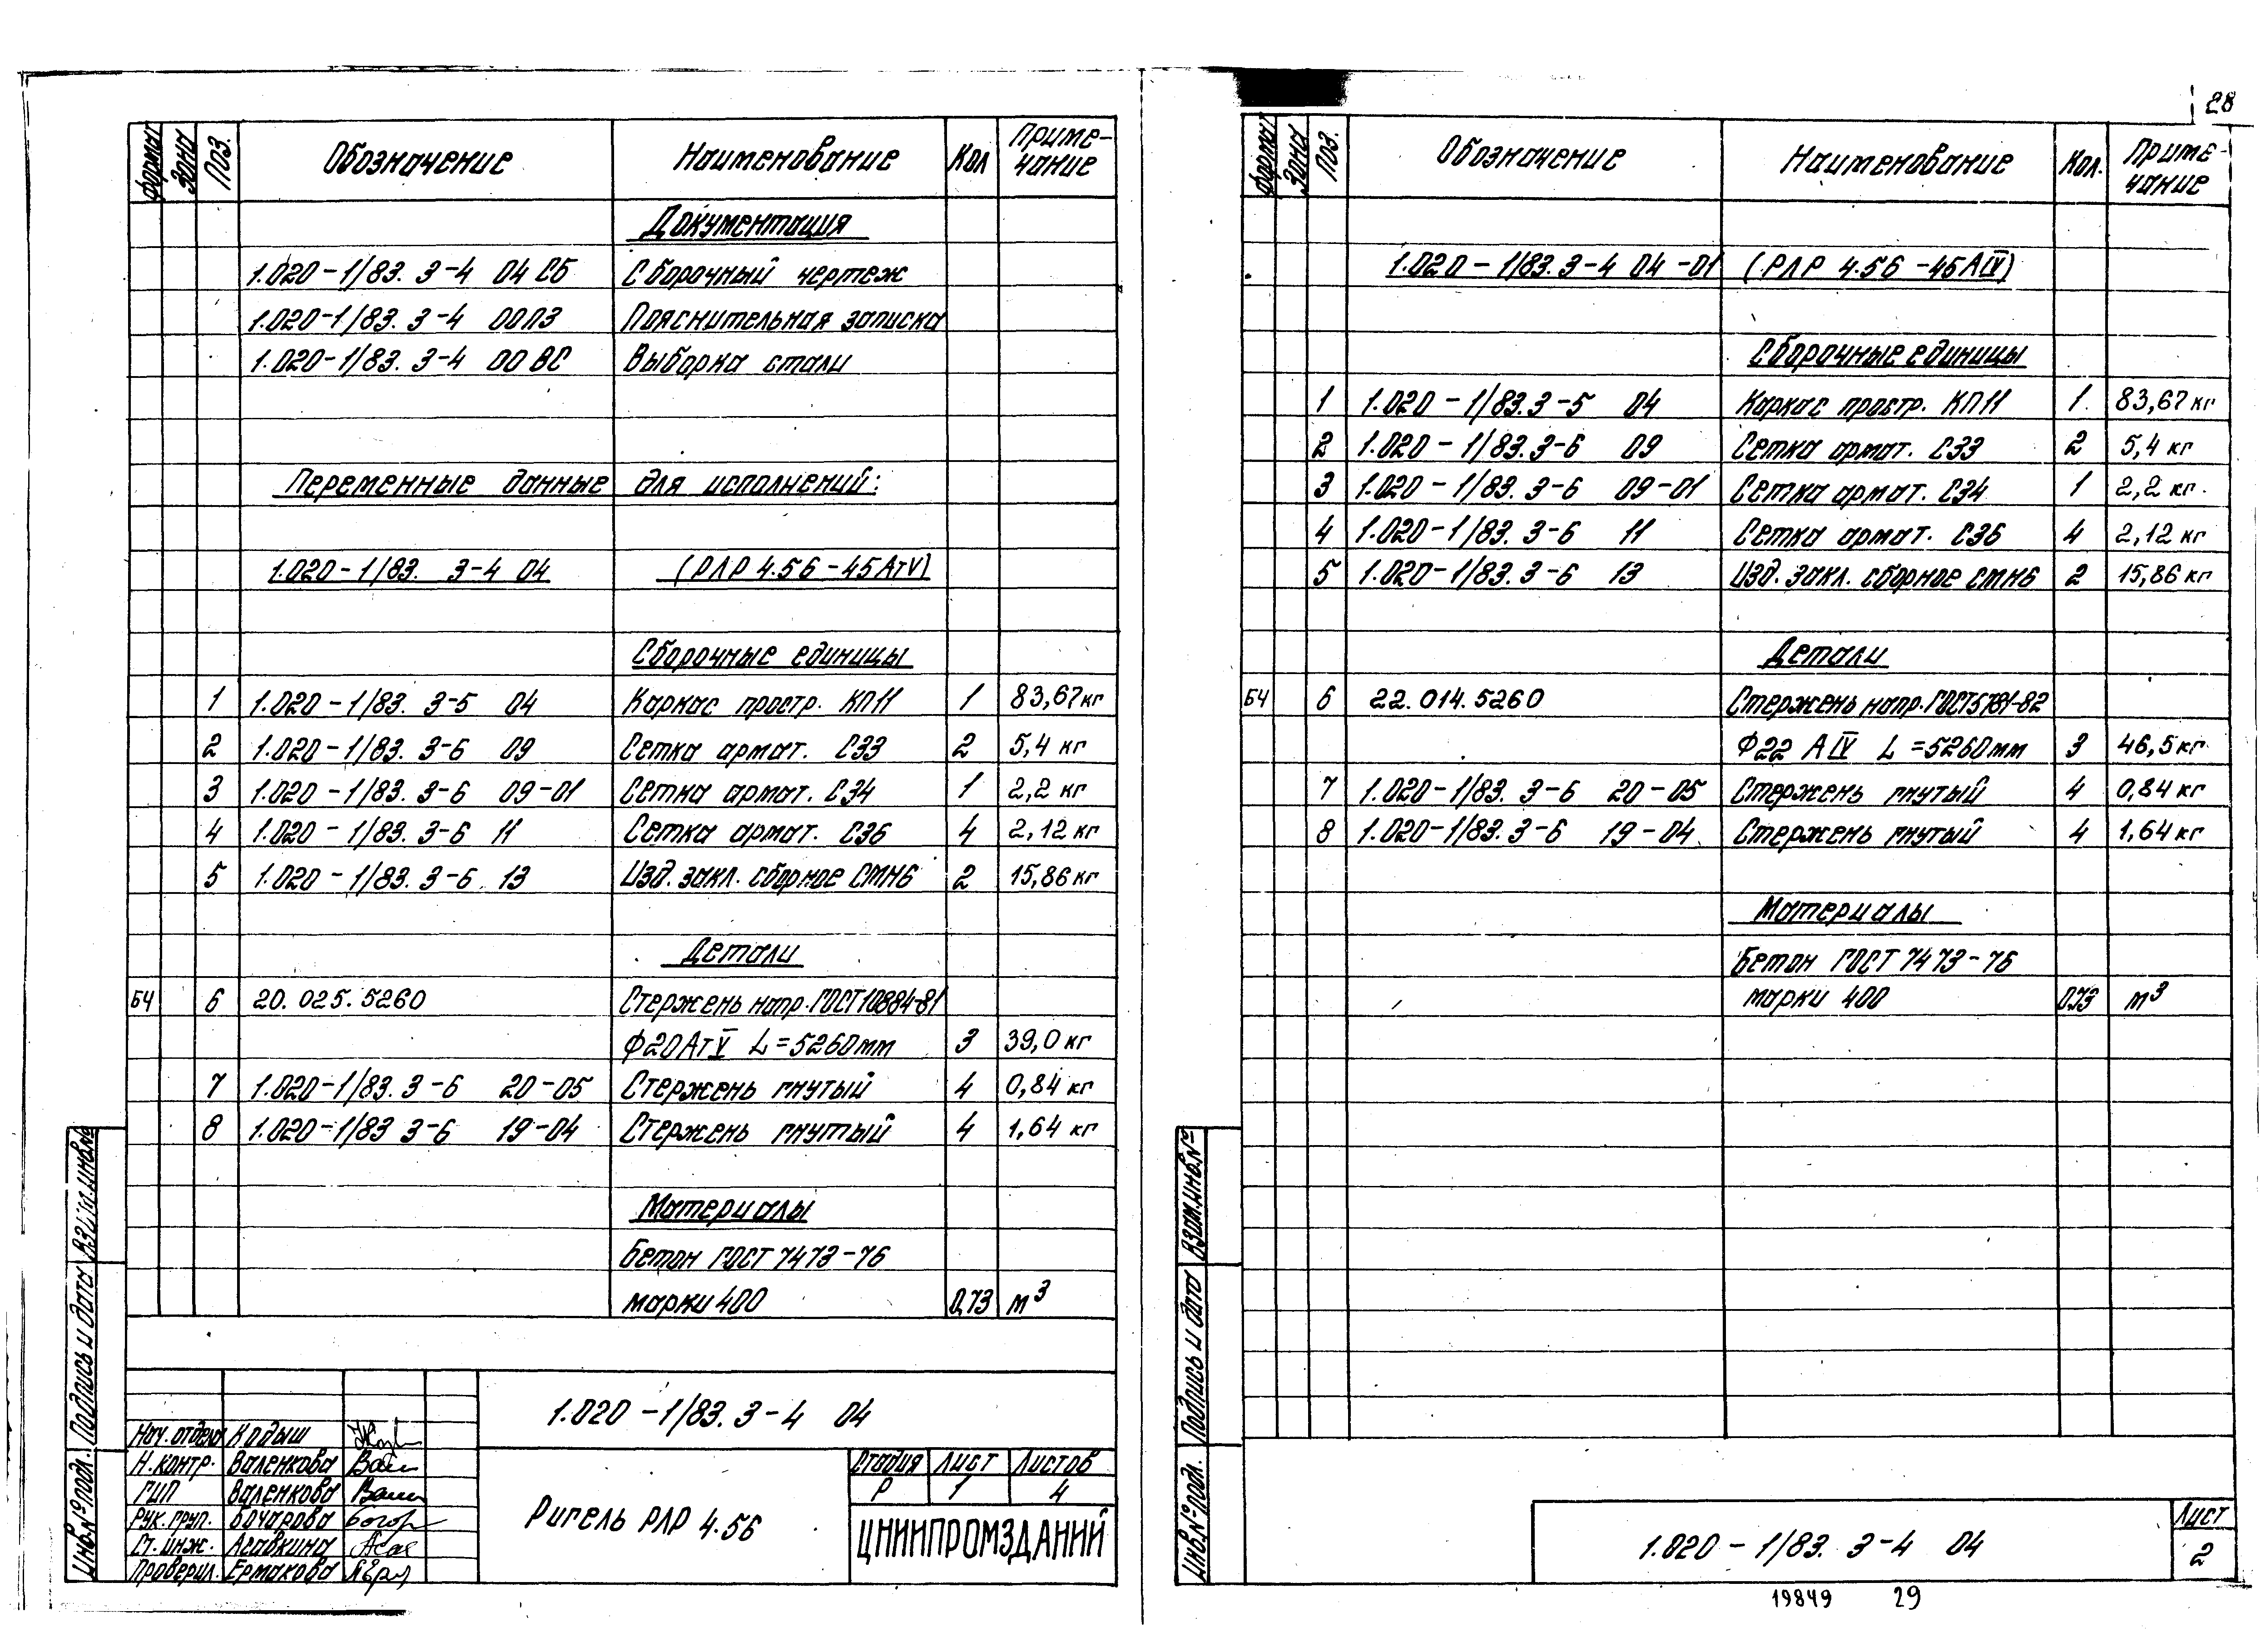 Формат Зона Поз. Обозначение Наименование Кол Приме-чание
Документация
1.020-1/83. 3-4 04 СБ Сборочный чертеж
1.020-1/83. 3-4 00ПЗ Пояснительная записка
1.020-1/83. 3-4 00 ВС Выборка стали
Переменные данные для исполнений:
1.020-1/83. 3-4 04 (РЛР 4.56-45АтV)
Сборочные единицы
1 1.020-1/83. 3-5 04 Каркас простр. КП11 1 83,67кг
2 1.020-1/83. 3-6 09 Сетка армат. С33 2 5,4 кг
3 1.020-1/83. 3-6 09-01 Сетка армат. С34 1 2,2 кг
4 1.020-1/83. 3-6 11 Сетка армат. С36 4 2,12 кг
5 1.020-1/83. 3-6 13 Изд. закл. сборное СМН6 2 15,86кг
Детали
БЧ 6 20.025.5260 Стержень напр. ГОСТ10884-81
Ф20АтV L=5260мм 3 39,0 кг
7 1.020-1/83. 3-6 20-05 Стержень гнутый 4 0,84 кг
8 1.020-1/83 3-6 19-04 Стержень гнутый 4 1,64 кг
Материалы
Бетон ГОСТ 7473-76
марки 400 0,73 м³
Взам.инв.№
Подпись и дата
Инв.№подл.
1.020-1/83. 3-4 04
Нач. отдела Кодыш
Н.контр. Валенкова
ГИП Валенкова
Рук. груп. Бочарова
Ст. инж. Асавкина
Проверил. Ермакова
Ригель РЛР 4.56
Стадия Лист Листов
Р 1 4
ЦНИИПРОМЗДАНИЙ
28
Формат Зона Поз. Обозначение Наименование Кол. Приме-чание
1.020-1/83. 3-4 04-01 (РЛР 4.56-45АIV)
Сборочные единицы
1 1.020-1/83. 3-5 04 Каркас простр. КП11 1 83,67кг
2 1.020-1/83. 3-6 09 Сетка армат. С33 2 5,4 кг
3 1.020-1/83. 3-6 09-01 Сетка армат. С34 1 2,2 кг.
4 1.020-1/83. 3-6 11 Сетка армат. С36 4 2,12 кг
5 1.020-1/83. 3-6 13 Изд. закл. сборное СМН6 2 15,86 кг
Детали
БЧ 6 22.014.5260 Стержень напр. ГОСТ5781-82
Ф22 АIV L=5260мм 3 46,5кг
7 1.020-1/83. 3-6 20-05 Стержень гнутый 4 0,84 кг
8 1.020-1/83. 3-6 19-04 Стержень гнутый 4 1,64 кг
Материалы
Бетон ГОСТ 7473-76
марки 400 0,73 м³
Взам.инв.№
Подпись и дата
Инв.№подл.
1.020-1/83. 3-4 04
Лист
2
19849 29